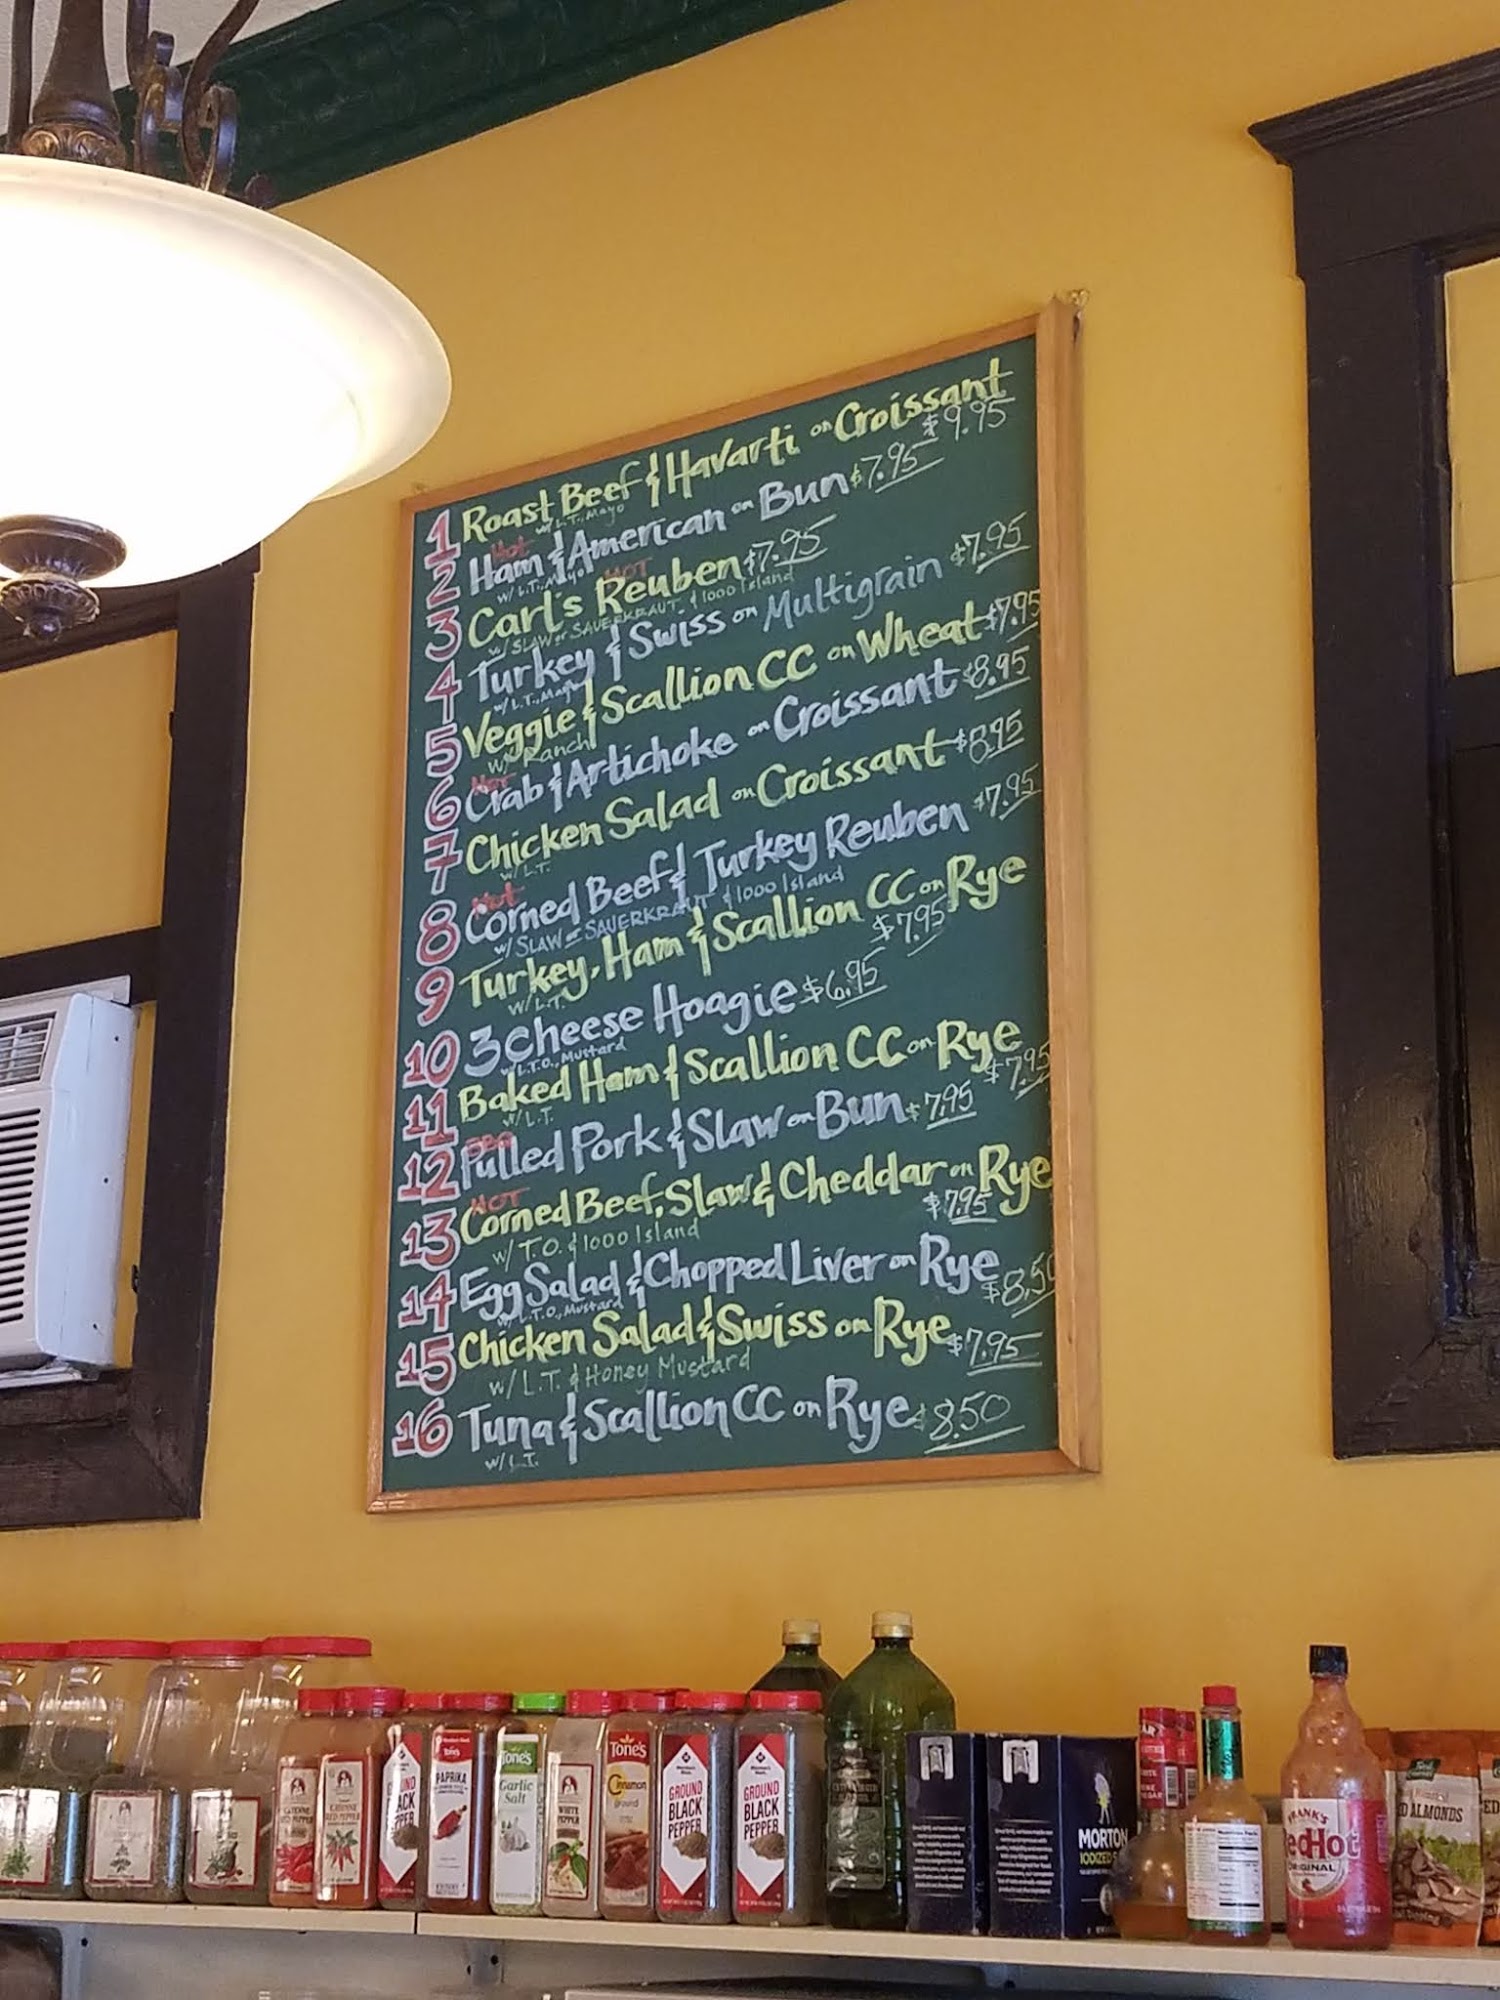 1 Roast Beef & Havarti on Croissant
$9.95
w/ L.T., Mayo
Hot
2 Ham & American on Bun $7.95
w/ L.T., Mayo
HOT
3 Carl's Reuben $7.95
w/ SLAW or SAUERKRAUT & 1000 Island
4 Turkey & Swiss on Multigrain $7.95
w/ L.T., Mayo
5 Veggie & Scallion CC on Wheat $7.95
w/ Ranch
Hot
6 Crab & Artichoke on Croissant $8.95
7 Chicken Salad on Croissant $8.95
w/ L.T.
Hot
8 Corned Beef & Turkey Reuben $7.95
w/ SLAW or SAUERKRAUT & 1000 Island
9 Turkey, Ham & Scallion CC on Rye
$7.95
w/ L.T.
10 3 Cheese Hoagie $6.95
w/ L.T.O., Mustard
11 Baked Ham & Scallion CC on Rye
$7.95
w/ L.T.
BBQ
12 Pulled Pork & Slaw on Bun $7.95
HOT
13 Corned Beef, Slaw & Cheddar on Rye
$7.95
w/ T.O. & 1000 Island
14 Egg Salad & Chopped Liver on Rye
$8.50
w/ L.T.O., Mustard
15 Chicken Salad & Swiss on Rye $7.95
w/ L.T. & Honey Mustard
16 Tuna & Scallion CC on Rye $8.50
w/ L.T.
CAYENNE
RED PEPPER
GROUND
BLACK
PEPPER
Tone's
PAPRIKA
Tone's
Garlic
Salt
WHITE
PEPPER
TONE'S
Cinnamon
Ground
GROUND
BLACK
PEPPER
GROUND
BLACK
PEPPER
MORTON
IODIZED
FRANK'S
RedHot
ORIGINAL
ALMONDS